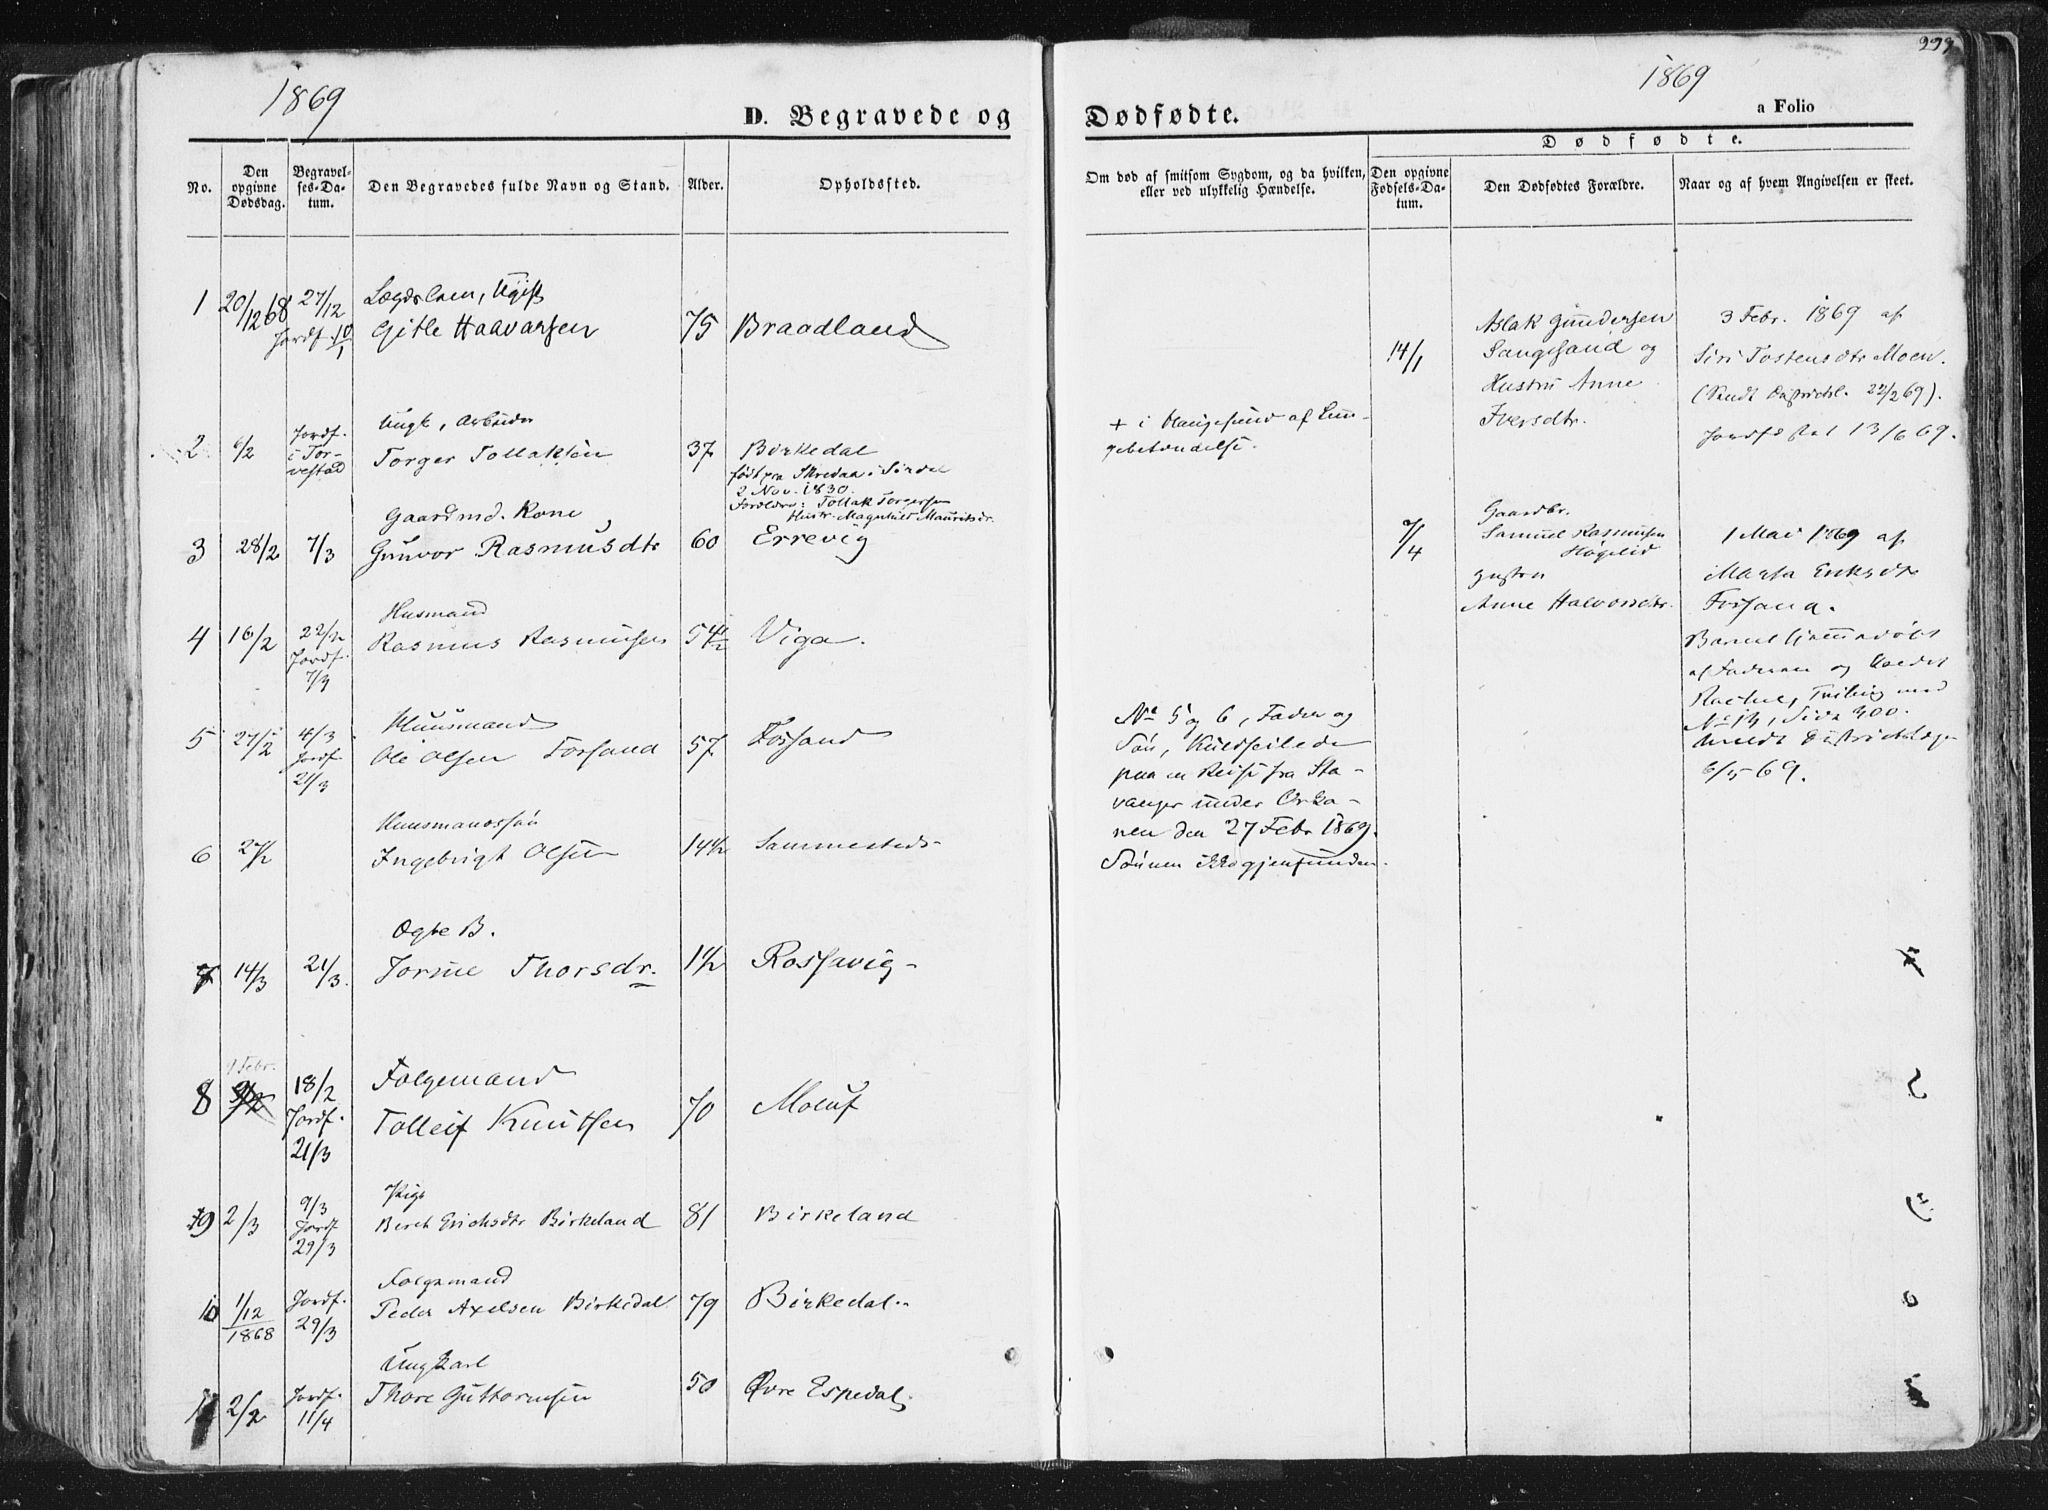 1869
D. Begravede og
No.
Den opgivne Dødsdag.
Begravel-ses-Da-tum.
Den Begravedes fulde Navn og Stand.
Alder.
Opholdssted.
1 20/12 68 27/12 Jordf. 10/1
Lægdslem, Ugift
Gitle Haavarsen 75 Braadland
Ungk, Arbeider
2 6/2 Jordf. i Tor-vestad
Torger Tollaksen 37 Birkedal
født paa Skredaa i Sirdal
2 Nov. 1830.
Forældre: Tollak Torgersen
Hustr. Magnhild Mauritsdr.
Gaardmd. Kone
3 28/2 7/3 Gunvor Rasmusdtr 60 Errevig
Husmand
4 16/2 22/2 Jordf. 7/3
Rasmus Rasmussen 54 1/2 Viga.
Huusmand
5 27/2 4/3 Jordf 21/3
Ole Olsen Forsand 57 Fossand
Huusmandssøn
6 27/2 Ingebrigt Olsen 14 1/2 Sammesteds-
Ægte B.
7 14/3 21/3. Jorine Thorsdr. 1 1/2 Rossavig-
9 Febr.
8 18/2 Jordf. 21/3
Folgemand
Tolleif Knutsen 70 Moluf
Pige
9 2/3 9/3 Jordf 29/3
Beret Erichsdtr Birkeland 81 Birkeland
Folgemand
10 1/12 1868 Jordf. 29/3
Peder Axelsen Birkedal 79 Birkedal..
Ungkarl
11 2/2 Jordf. 11/4
Thore Guttormsen 50 Øvre Espedal.
299
1869
a Folio
Dødfødte.
Om død af smitsom Sygdom, og da hvilken,
eller ved ulykkelig Hændelse.
Dødfødte.
Den opgivne Fødsels-Da-tum.
Den Dødfødtes Forældre.
Naar og af hvem Angivelsen er skeet.
+ i Haugesund af Lun-
gebetændelse.
No 5 og 6, Fader og
Søn, Kuldseilede
paa en Reise fra Sta-
vanger under Orka-
nen den 27 Febr 1869.
Sønnen ikke gjenfunden.
14/1
Aslak Gundersen
Sangesand og
Hustru Anne
Iversdtr.
3 Febr. 1869 af
Siri Tostensdtr Moen.
(Sendt Distriktsl. 22/2 69).
Jordfæstet 13/6 69.
7/4
Gaardbr.
Samuel Rasmussen
Høgelid
Anne Halvorsdtr.
1 Mai 1869 af
Marta Eriksdtr
Forsand.
Barnet hjemmedøbt
af Faderen og kaldet
Rachel, Tvilling med
No 13, Side 300.
Anmeldt Distriktslægen
6/5 69.